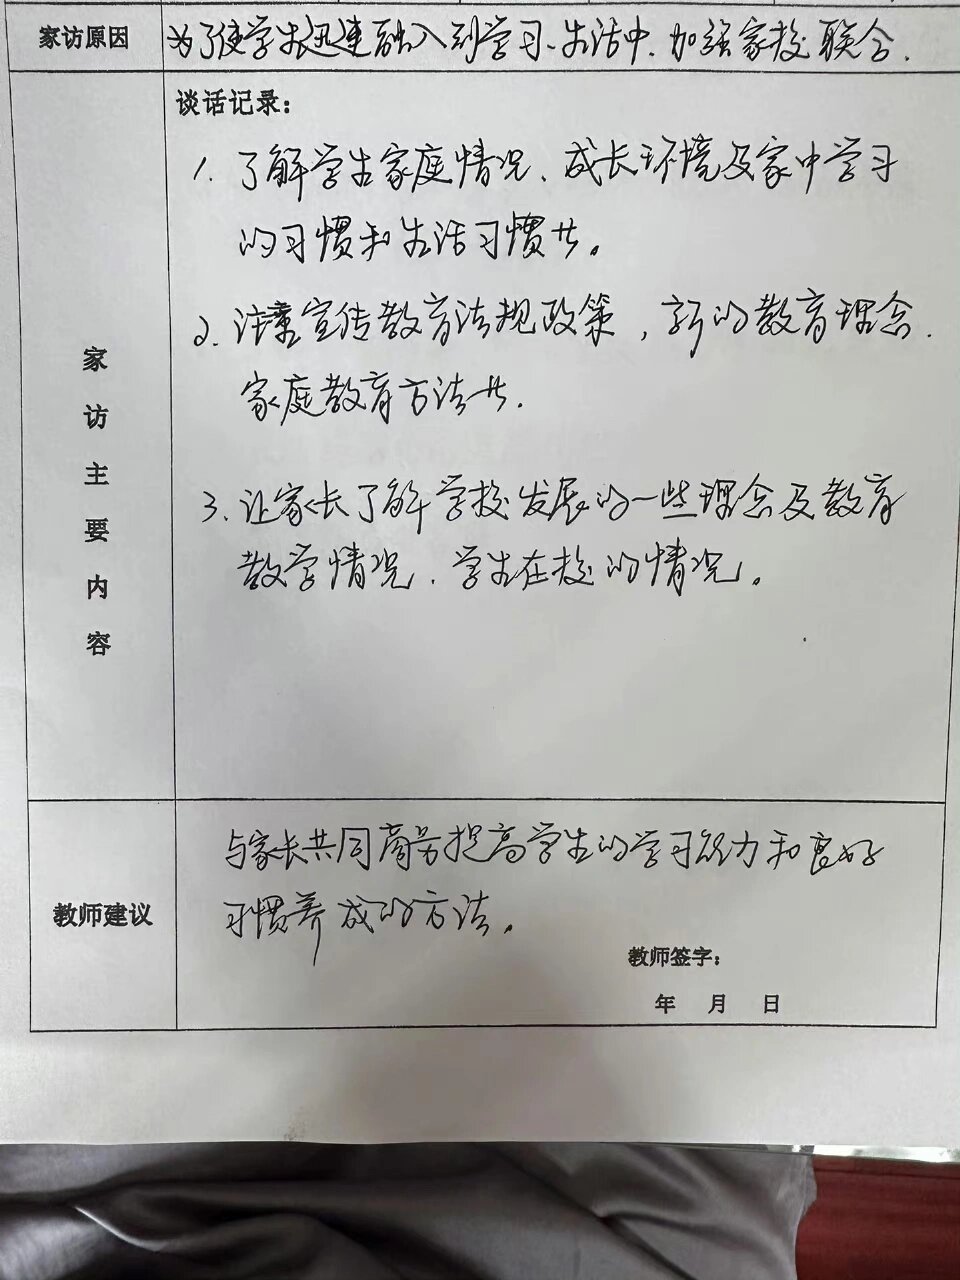 家访原因 为了使学生迅速融入到学习、生活中,加强家校联合.
谈话记录:
1. 了解学生家庭情况、成长环境及家中学习
的习惯和生活习惯廿。
2. 注重宣传教育法规政策,新的教育理念.
家庭教育方法廿.
3. 让家长了解学校发展的一些理念及教育
教学情况.学生在校的情况。
家访主要内容
与家长共同商量提高学生的学习能力和良好
习惯养成的方法。
教师建议
教师签字:
年 月 日